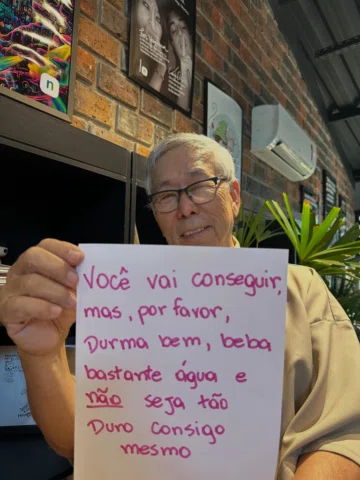 Você vai conseguir,
mas, por favor,
Durma bem, beba
bastante água e
não seja tão
Duro consigo
mesmo
n